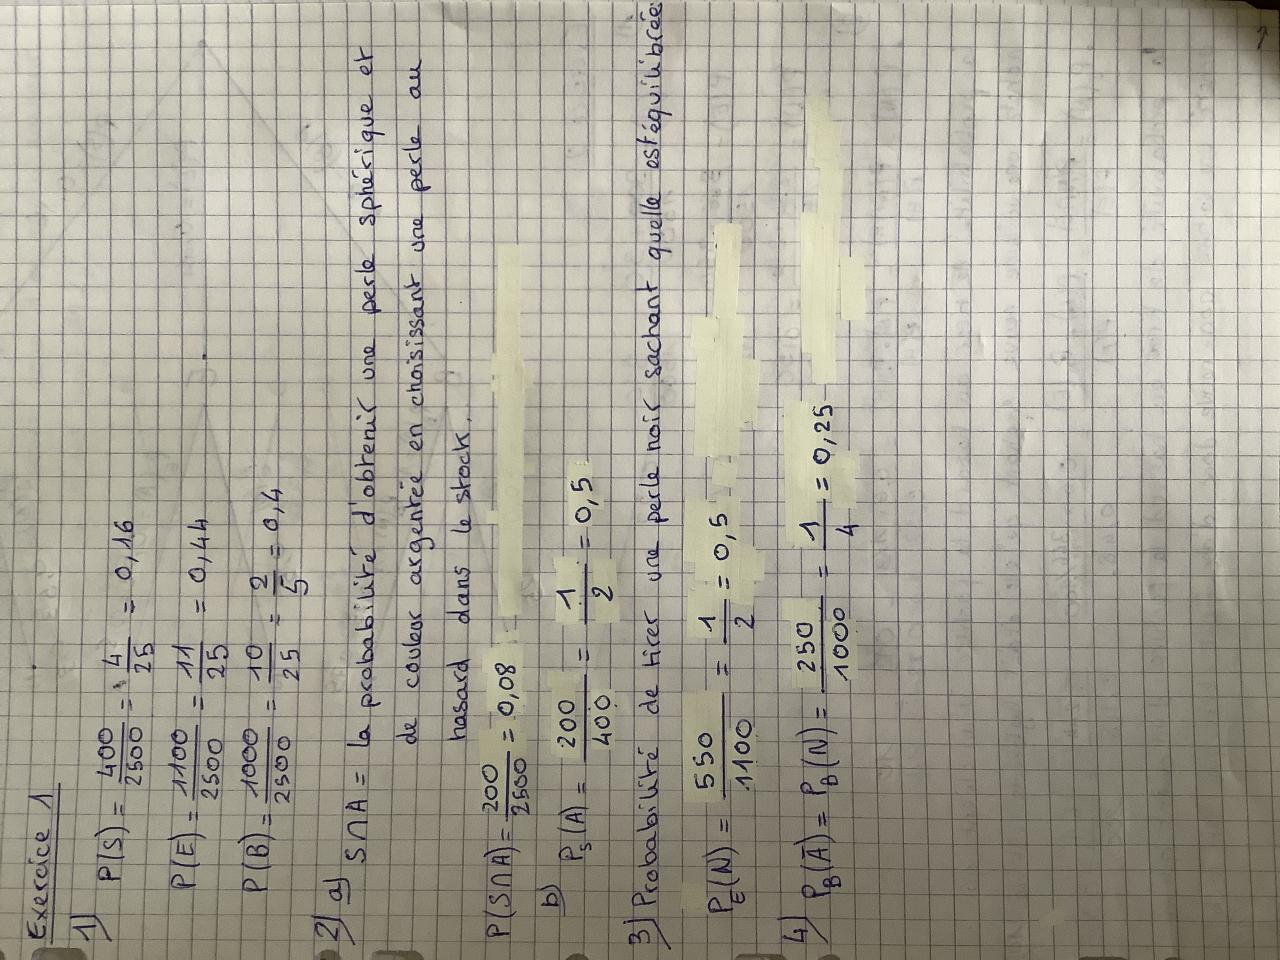 Exercice 1
1) P(S) = 400/2500 = 4/25 = 0,16
P(E) = 1100/2500 = 11/25 = 0,44
P(B) = 1000/2500 = 10/25 = 2/5 = 0,4
2) a) S∩A = la probabilité d'obtenir une perle sphérique et
de couleur argentée en choisissant une perle au
hasard dans le stock.
P(S∩A) = 200/2500 = 0,08
b) P_S(A) = 200/400 = 1/2 = 0,5
3) Probabilité de tirer une perle noir sachant quelle est équilibrée
P_E(N) = 550/1100 = 1/2 = 0,5
4) P_B(Ā) = P_B(N) = 250/1000 = 1/4 = 0,25